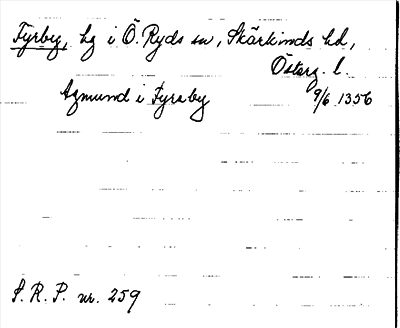 Fyrby, hg i Ö. Ryds sn, Skärkinds hd,
Österg. l.
Agmund i Fyraby 9/6 1356
S. R. P. nr. 259